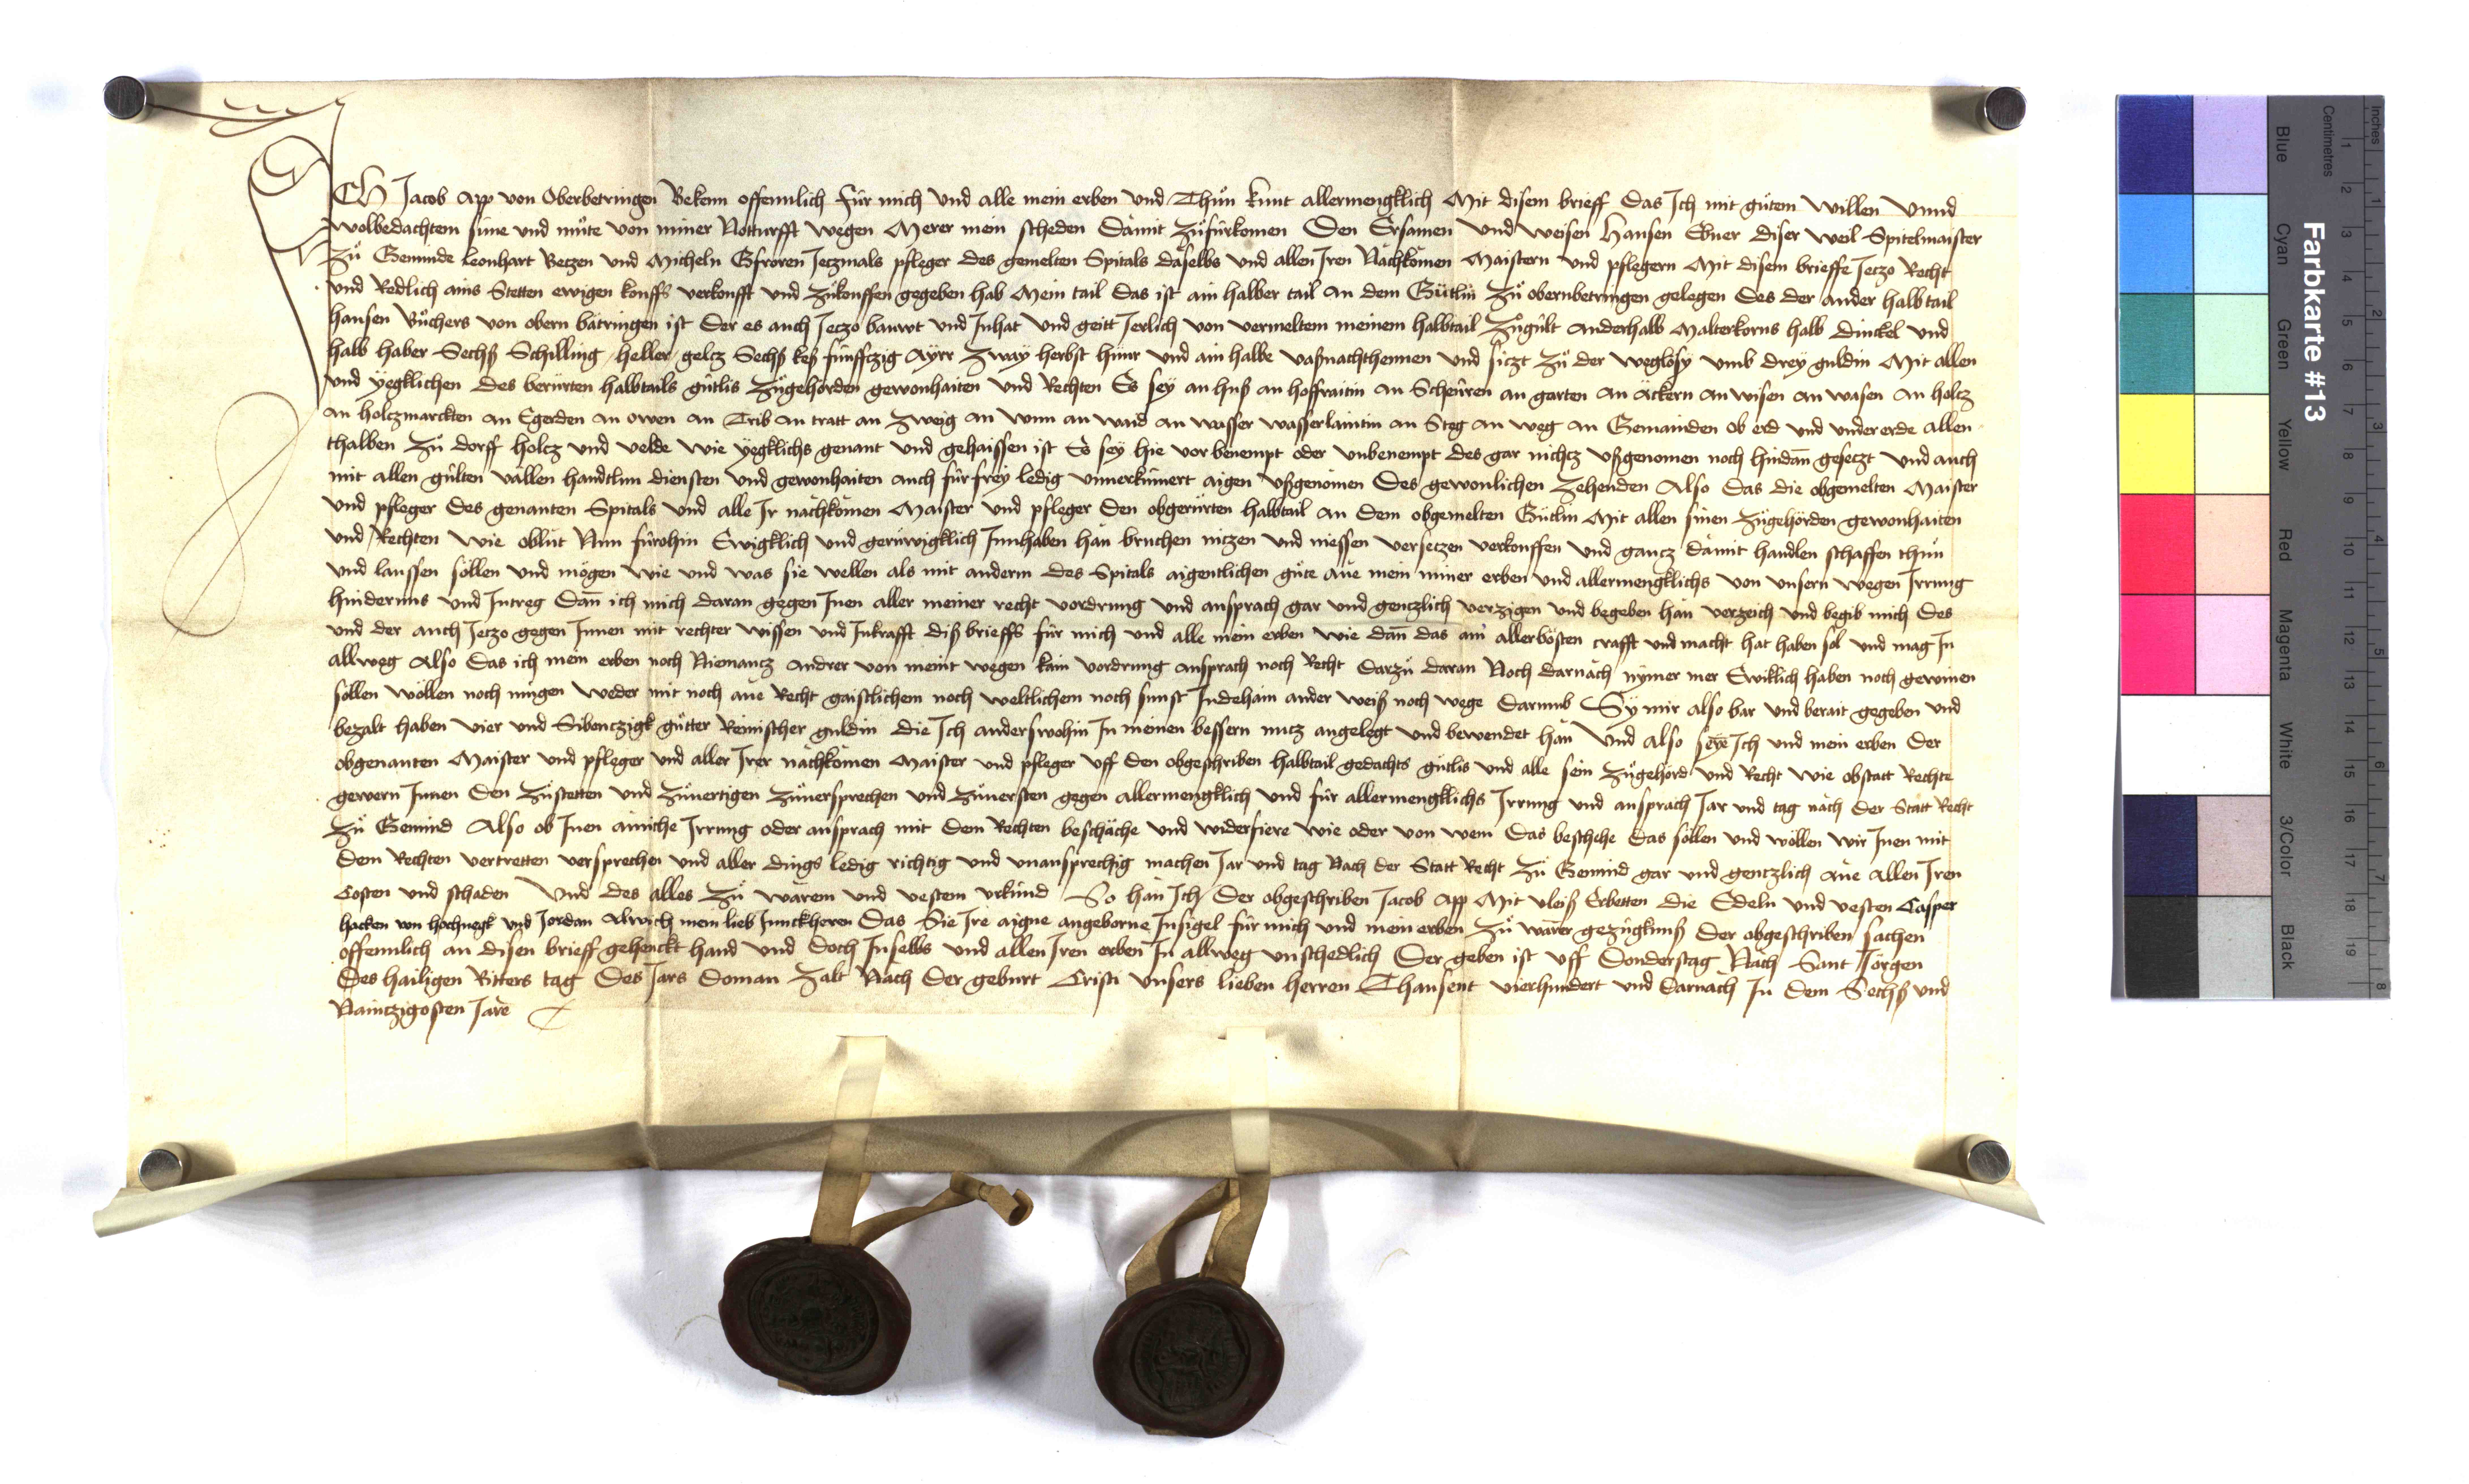 ICH Jacob App von Oberbetringen Bekenn offennlich für mich und alle mein erben und Thůn kunt allermengklich Mit disem brieff Das Ich mit gůtem willen Unnd
wolbedachtem sinne und můte von miner Notturfft wegen Merer mein scheden Damit Zůfürkomen Den Ersamen und weisen Hansen Ebner diser weil Spitelmaister
Zů Gemünde Leonhart Betzen und Micheln Gfroren Jeczmals pfleger des gemelten Spitals daselbs und allen Iren Nachkomen Maistern und pflegern Mit disem brieffe Jeczo Recht
und Redlich ains Stetten ewigen kouffs verkoufft und Zůkouffen gegeben hab Mein tail Das ist ain halber tail an dem Gütlin Zů obernbetringen gelegen Des der ander halbtail
hansen Bůchers von obern bätringen ist Der es auch Jeczo bauwt und Innhat und geitt Jerlich von vermeltem meinem halbtail Zůgült anderhalb Malterkorns halb dinckel und
halb haber Sechß Schilling heller gelcz Sechß keß fünffczig Ayrr Zway herbst hünr und ain halbe vaßnachthennen und siczt Zů der weglösy umb drey guldin Mit allen
und yegklichen des berürten halbtails gütlis Zůgehörden gewonhaiten und Rechten Es sey an huß an hoffraitin an Scheüren an garten an äckern an wisen an wasen an holcz
an holczmarckten an Egerden an owen an Trib an tratt an Zweig an wunn an waid an wasser wasserlaintin an Steg an weg an Gemainden ob erd und under erde allen
thalben Zů dorff holcz und velde wie yegklichs genant und gehaissen ist Es sey hie vor benempt oder unbenempt des gar nichcz ußgenomen noch hindan geseczt und auch
mit allen gülten vällen handtlun diensten und gewonhaiten auch für frey ledig unnerkümert aigen ußgenomen Des gewonlichen Zehenden Also Das die obgemelten Maister
und pfleger des genanten Spitals und alle Ir nachkomen Maister und pfleger Den obgerürten halbtail an dem obgemelten Gütlin Mit allen sinen Zůgehörden gewonhaiten
und Rechten wie oblut Nun fürohin Ewigklich und gerüwigklich Innhaben han bruchen niczen und niessen verseczen verkouffen und gancz damit handlen schaffen thůn
und laussen söllen und mögen wie und was sie wellen als mit anderm des Spitals aigentlichen gůte ane mein miner erben und allermengklichs von unsern wegen Irrung
hindernus und Intreg Dan ich mich daran gegen Inen aller meiner recht vordrung und ansprach gar und genczlich verzigen und begeben han verzeich und begib mich Des
und der auch Jeczo gegen Innen mit rechter wissen und Inkrafft diß brieffs für mich und alle mein erben wie dan das am allerbösten crafft und macht hat haben sol und mag In
allweg Also Das ich mein erben noch Niemancz andrer von meint wegen kain vordrung ansprach noch Recht Darzů daran Noch darnach nymer mer Ewiklich haben noch gewinen
sollen wöllen noch mügen weder mit noch ane Recht gaistlichem noch weltlichem noch sunst Indehain ander weiß noch wege Darumb Sy mir also bar und berait gegeben und
bezalt haben vier und Sibenczigk gůtter Reinischer guldin die Ich anderswohin In meinen bessern nucz angelegt und bewendet han Und Also seye Ich und mein erben Der
obgenanten Maister und pfleger und aller Irer nachkomen Maister und pfleger uff den obgeschriben halbtail gedachts gütlis und alle sein Zůgehörd und Recht wie obstatt Rechte
gewern Innen Den Zůstetten und Zůuertigen Zůuersprechen und Zůuersten gegen allermengklich und für allermengklichs Irrung und ansprach Jar und tag nach der Statt Recht
Zů Gemünd Also ob Inen ainiche Irrung oder ansprach mit dem Rechten beschäche und widerfiere wie oder von wem Das beschehe Das söllen und wöllen wir Inen mit
Dem Rechten vertretten versprechen und aller dings ledig richtig und unansprechig machen Jar und tag Nach der Statt Recht Zů Gemünd gar und gentzlich ane allen Iren
Costen und schaden Und des alles Zů warem und vestem urkünd So han Ich Der obgeschriben Jacob App Mit vleiß Erbetten die Edeln und vesten Casper
hacken von hochnegk und Jordan Alwich mein lieb Junckheren Das Sie Ire aigne angeborne Insigel für mich und mein erben Zů warer gezügknus Der obgeschriben sachen
offennlich an disen brieff gehenckt hand und Doch Inselbs und allen Iren erben In allweg unschedlich Der geben ist uff Donderstag Nach Sant Jörgen
Des hailigen Ritters tag Des Jars Do man Zalt Nach Der geburt Cristi unsers lieben herren Thausent vierhundert und Darnach In Dem Sechß und
Naintzigosten Jare
Farbkarte #13
Inches
Centimetres
Blue
Cyan
Green
Yellow
Red
Magenta
White
3/Color
Black
1 2 3 4 5 6 7 8 9 10 11 12 13 14 15 16 17 18 19
1 2 3 4 5 6 7 8